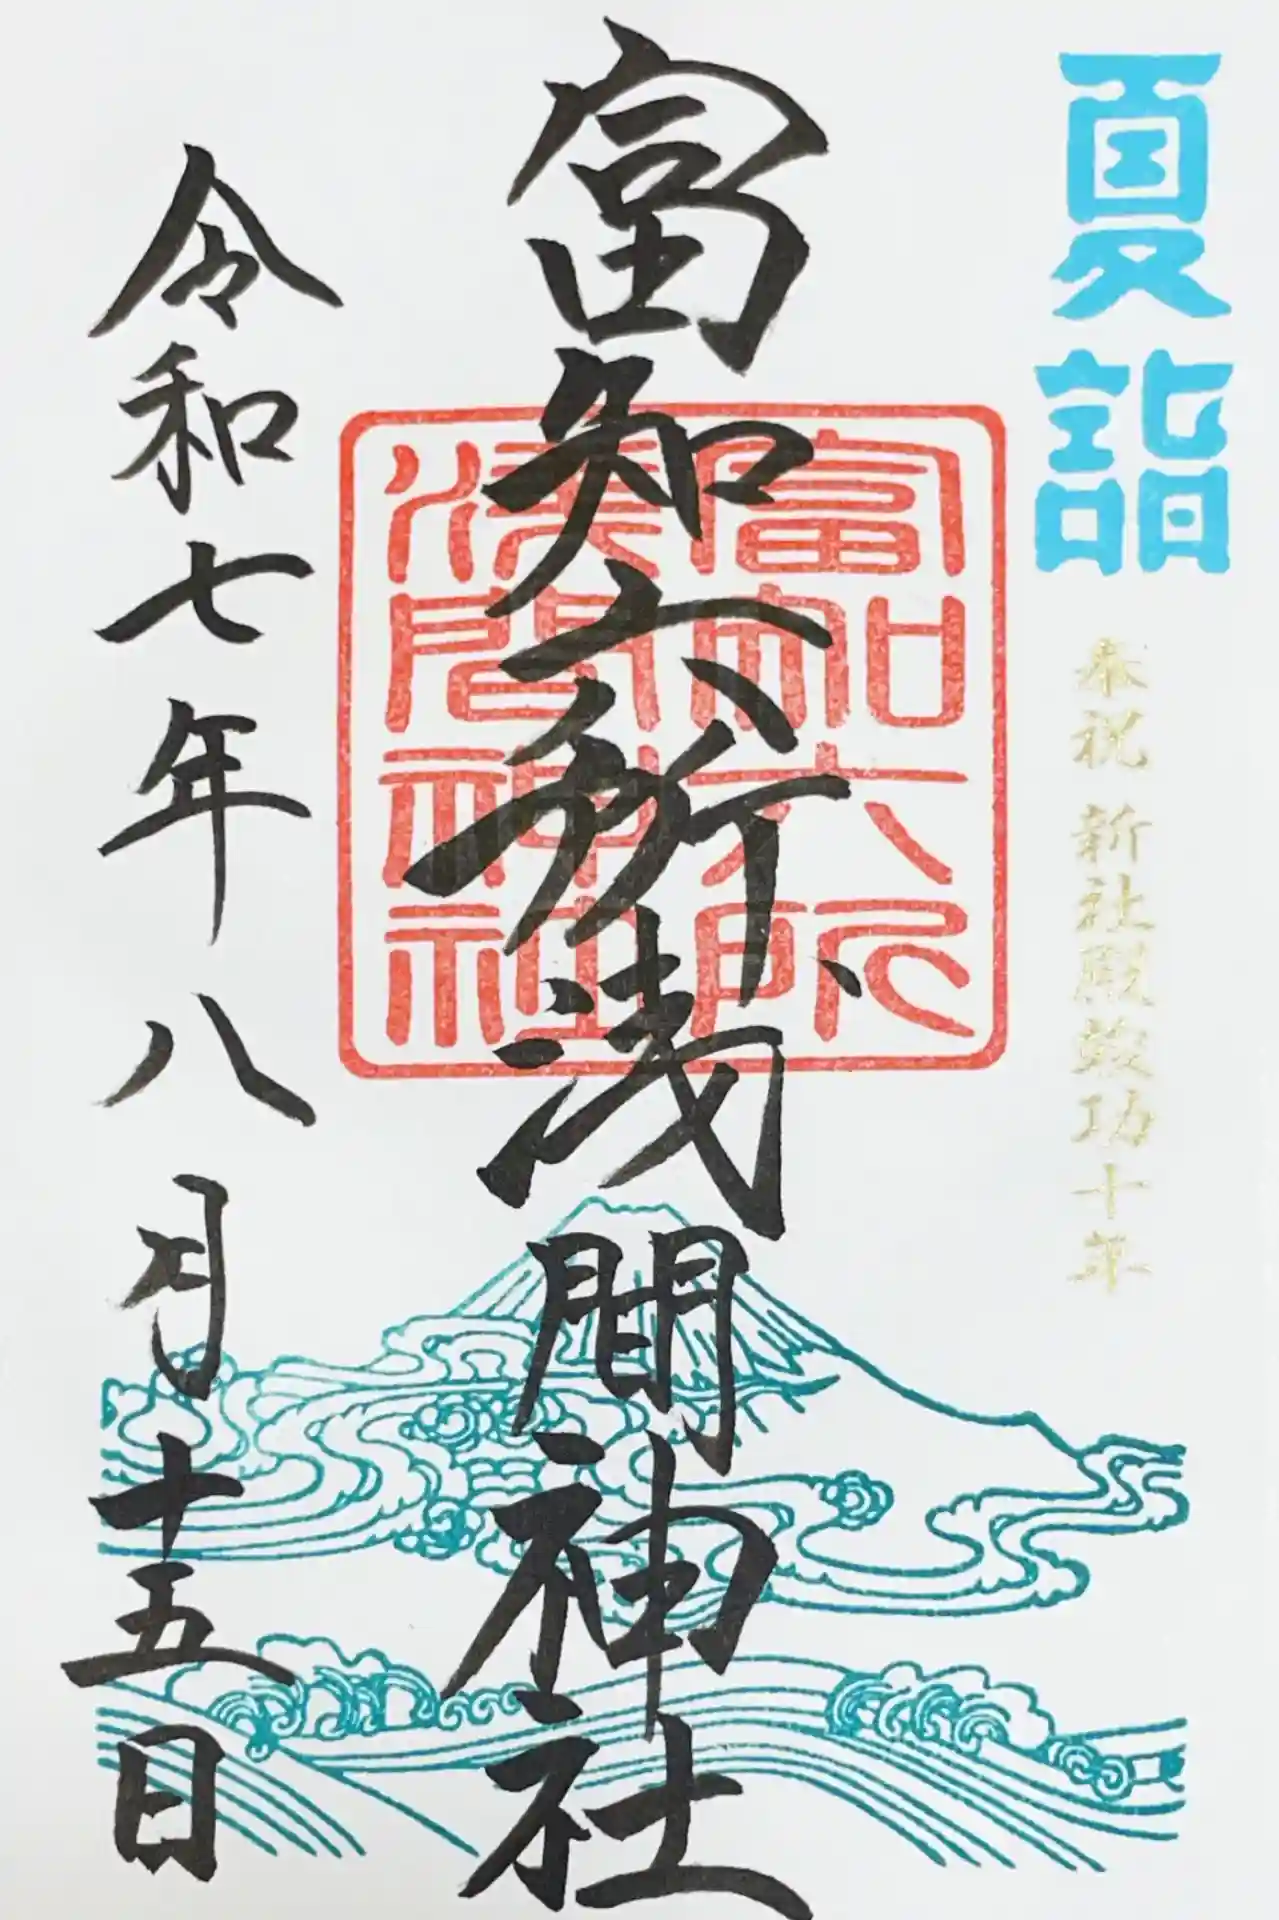 夏詣
奉祝 新社殿竣功十年
富知六所浅間神社
富知六所
浅間神社
令和七年八月十五日